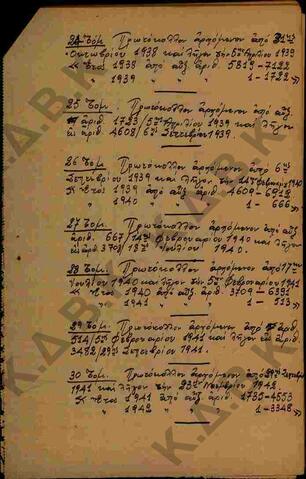 24 Τόμ. Πρωτόκολλον ἀρχόμενον ἀπὸ 31ης
Ὀκτωβρίου 1938 καὶ λῆγον τὴν 5ην Ἀπριλίου 1939
Κ ἔτος 1938 ἀπὸ αὔξ. ἀριθ. 5819-7122
" 1939 " 1-1722
25 Τόμ. Πρωτόκολλον ἀρχόμενον ἀπὸ αὔξ.
ἀριθ. 1723/5ης Ἀπριλίου 1939 καὶ λῆγον
εἰς ἀριθ. 4608/6ης Σεπτεβρίου 1939.
26 Τόμ. Πρωτόκολλον ἀρχόμενον ἀπὸ 6ης
Σεπτεβρίου 1939 καὶ λῆγον τὴν 14ην Φεβρουαρ. 1940
Κ ἔτος 1939 ἀπὸ αὔξ. ἀριθ. 4609-6912
" 1940 " 1-666
27 Τόμ. Πρωτόκολλον ἀρχόμενον ἀπὸ αὔξ.
ἀριθ. 667/14ης Φεβρουαρίου 1940 καὶ λῆγον
εἰς ἀριθ. 3708/18ης Ἰουλίου 1940.
28 Τόμ. Πρωτόκολλον ἀρχόμενον ἀπὸ 17ης
Ἰουλίου 1940 καὶ λῆγον τὴν 5ην Φεβρουαρίου 1941
Κ ἔτος 1940 ἀπὸ αὔξ. ἀριθ. 3709-6391
" 1941 " 1-513
29 Τόμ. Πρωτόκολλον ἀρχόμενον ἀπὸ ἀριθ.
514/5ης Φεβρουαρίου 1941 καὶ λῆγον εἰς ἀριθ.
3482/29ης Σεπτεβρίου 1941.
30 Τόμ. Πρωτόκολλον ἀρχόμενον ἀπὸ 29ης Σεπτεβρ.
1941 καὶ λῆγον τὴν 23ην Νοεμβρίου 1942.
Κ ἔτος 1941 ἀπὸ αὔξ. ἀριθ. 1735-4553
" 1942 " 1-3348